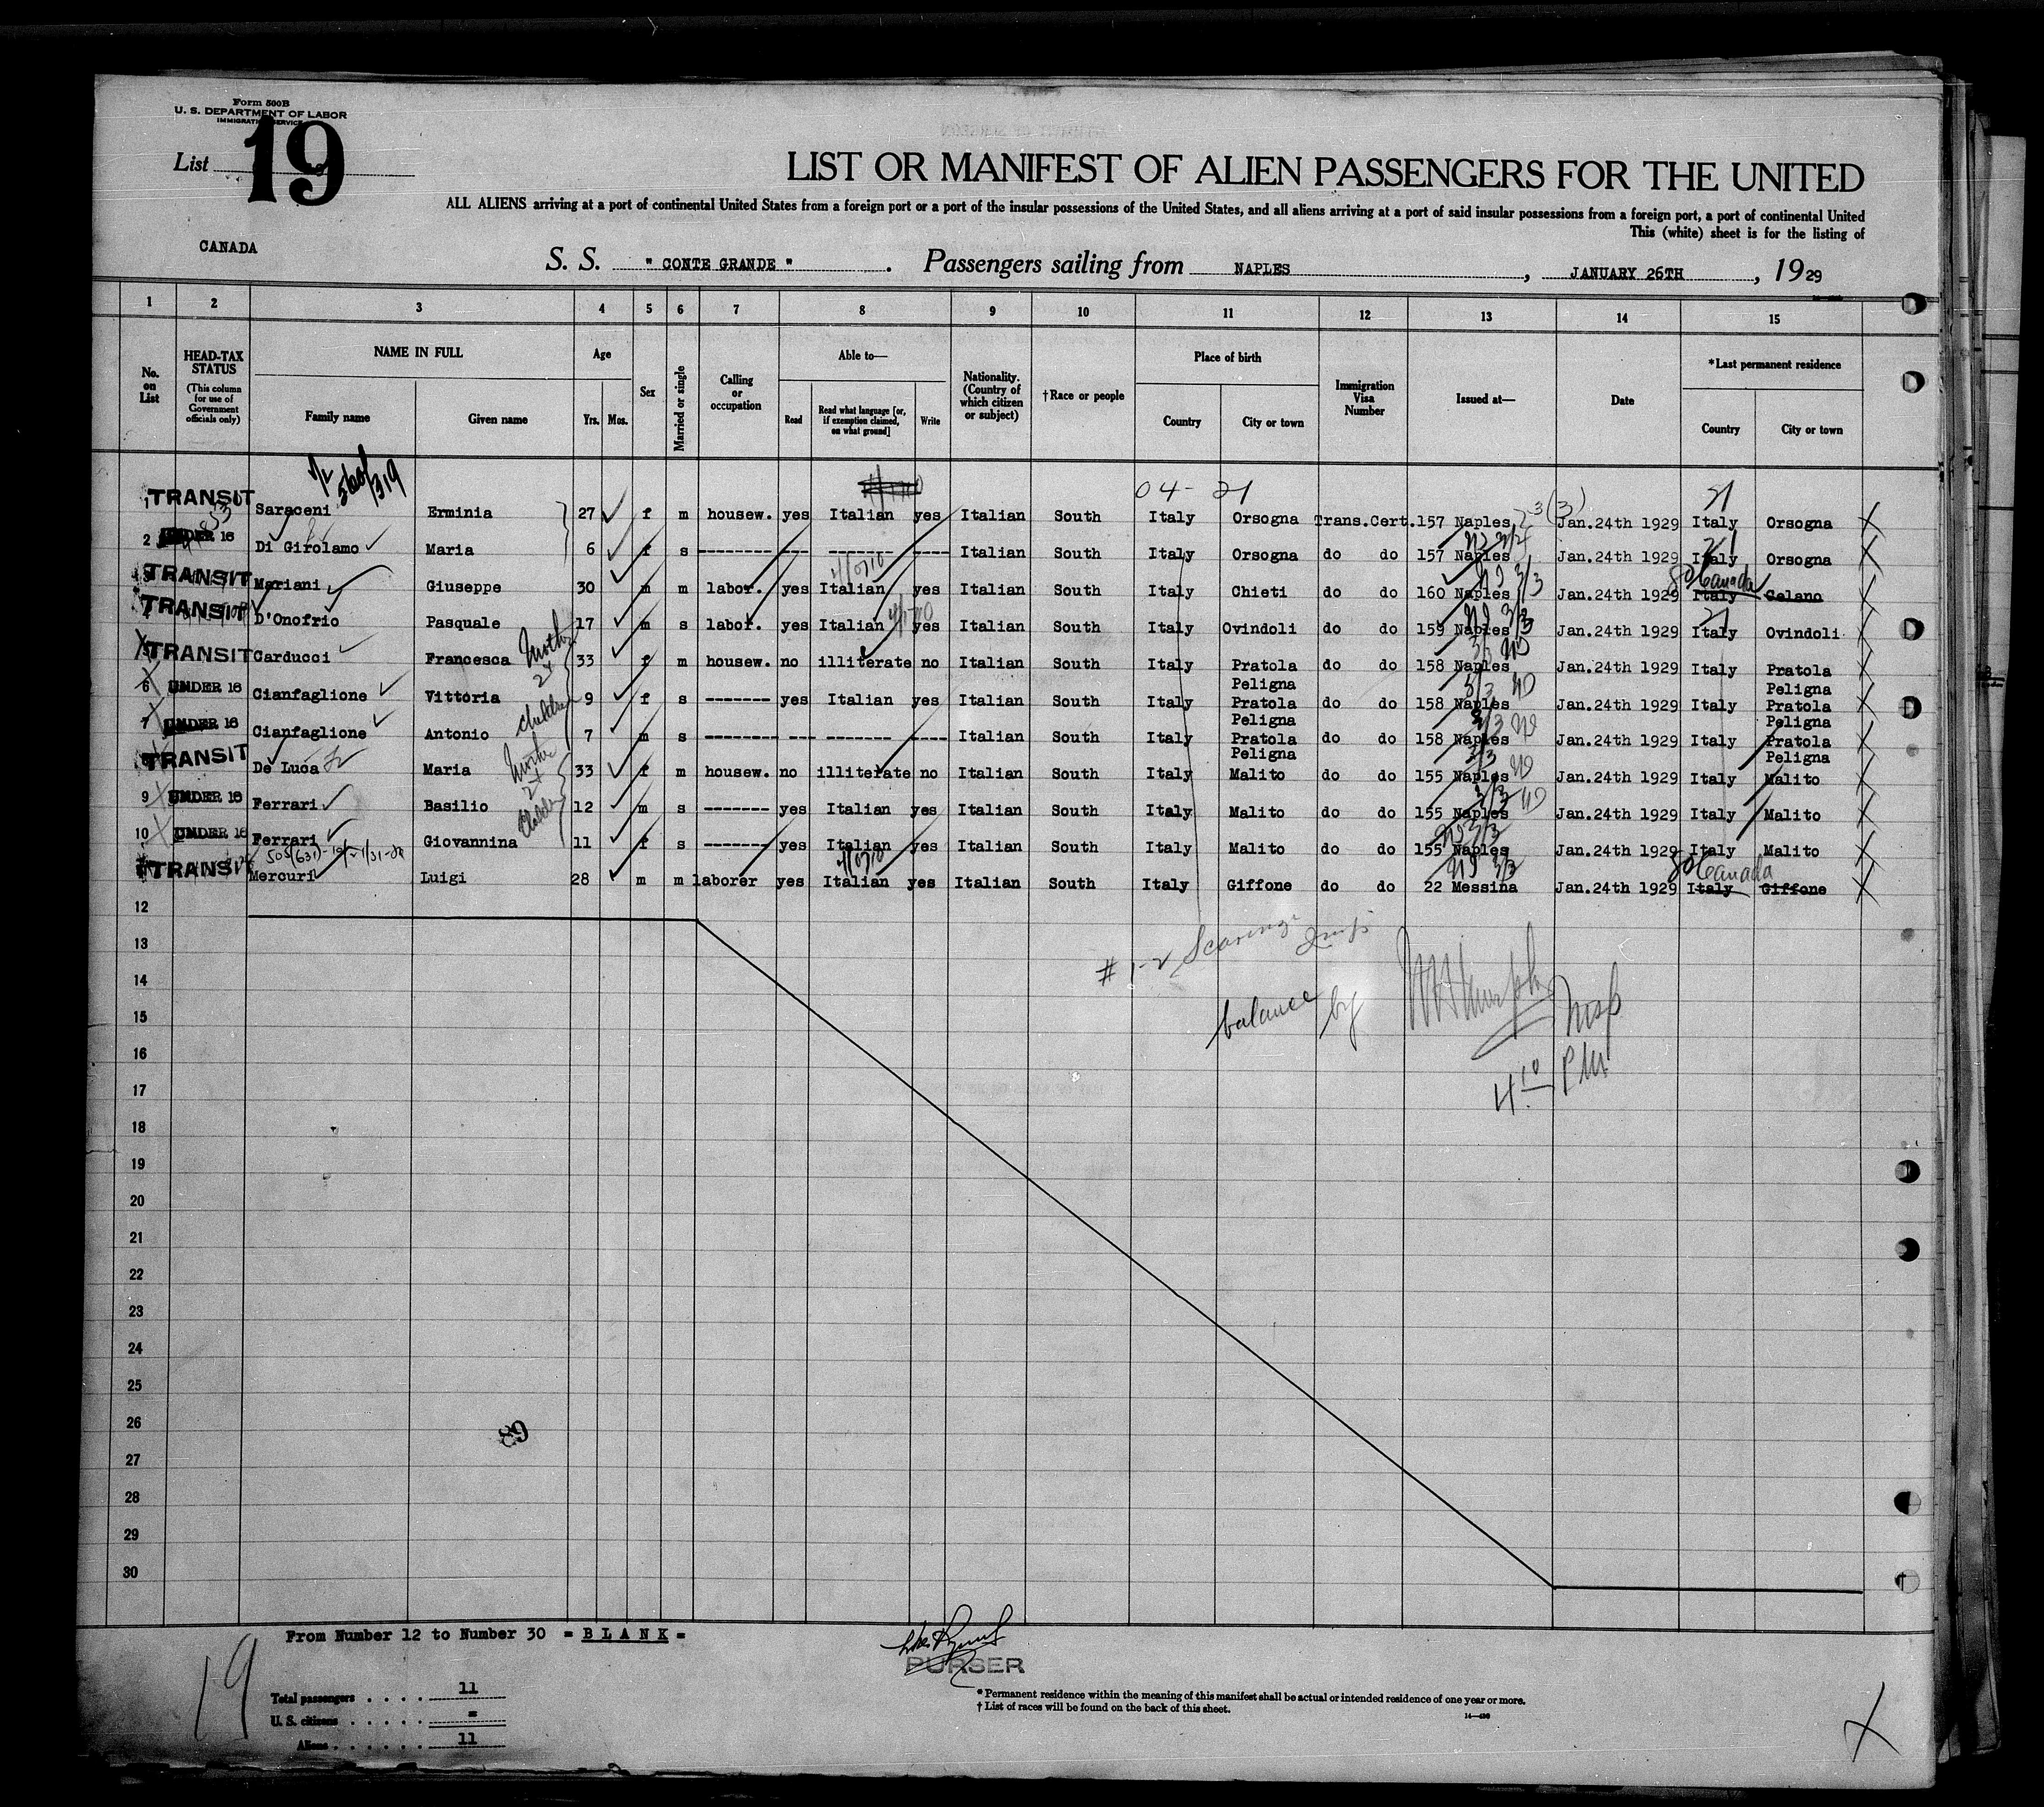 Form 500B
U. S. DEPARTMENT OF LABOR
IMMIGRATION SERVICE
List 19
LIST OR MANIFEST OF ALIEN PASSENGERS FOR THE UNITED
ALL ALIENS arriving at a port of continental United States from a foreign port or a port of the insular possessions of the United States, and all aliens arriving at a port of said insular possessions from a foreign port, a port of continental United
This (white) sheet is for the listing of
CANADA
S. S. " CONTE GRANDE " . Passengers sailing from NAPLES , JANUARY 26TH , 1929
1 2 3 4 5 6 7 8 9 10 11 12 13 14 15
No. on List
HEAD-TAX STATUS (This column for use of Government officials only)
NAME IN FULL Family name Given name
Age Yrs. Mos.
Sex
Married or single
Calling or occupation
Able to— Read Read what language [or, if exemption claimed, on what ground] Write
Nationality. (Country of which citizen or subject)
†Race or people
Place of birth Country City or town
Immigration Visa Number
Issued at—
Date
*Last permanent residence Country City or town
04- 21 21
TRANSIT Saraceni Erminia 27 f m housew. yes Italian yes Italian South Italy Orsogna Trans.Cert.157 Naples Jan.24th 1929 Italy Orsogna
2 UNDER 16 Di Girolamo Maria 6 f s ------- --- ------- ---- Italian South Italy Orsogna do do 157 Naples Jan.24th 1929 Italy Orsogna
TRANSIT Mariani Giuseppe 30 m m labor. yes Italian yes Italian South Italy Chieti do do 160 Naples Jan.24th 1929 Italy Canada Celano
TRANSIT D'Onofrio Pasquale 17 m s labor. yes Italian yes Italian South Italy Ovindoli do do 159 Naples Jan.24th 1929 Italy Ovindoli
TRANSIT Carducci Francesca Mother 33 f m housew. no illiterate no Italian South Italy Pratola Peligna do do 158 Naples Jan.24th 1929 Italy Pratola Peligna
6 UNDER 16 Cianfaglione Vittoria 9 f s ------- yes Italian yes Italian South Italy Pratola Peligna do do 158 Naples Jan.24th 1929 Italy Pratola Peligna
7 UNDER 16 Cianfaglione Antonio 7 m s ------- --- ------- ---- Italian South Italy Pratola Peligna do do 158 Naples Jan.24th 1929 Italy Pratola Peligna
TRANSIT De Luca Maria 33 f m housew. no illiterate no Italian South Italy Malito do do 155 Naples Jan.24th 1929 Italy Malito
9 UNDER 16 Ferrari Basilio 12 m s ------- yes Italian yes Italian South Italy Malito do do 155 Naples Jan.24th 1929 Italy Malito
10 UNDER 16 Ferrari Giovannina 11 f s ------- yes Italian yes Italian South Italy Malito do do 155 Naples Jan.24th 1929 Italy Malito
TRANSIT Mercuri Luigi 28 m m laborer yes Italian yes Italian South Italy Giffone do do 22 Messina Jan.24th 1929 Italy Canada Giffone
12
13
14
15
16
17
18
19
20
21
22
23
24
25
26
27
28
29
30
balance by
4 10 PM
89
From Number 12 to Number 30 = B L A N K =
PURSER
19
Total passengers . . . . 11
U. S. citizens . . . . . =
Aliens . . . . . . 11
* Permanent residence within the meaning of this manifest shall be actual or intended residence of one year or more.
† List of races will be found on the back of this sheet.